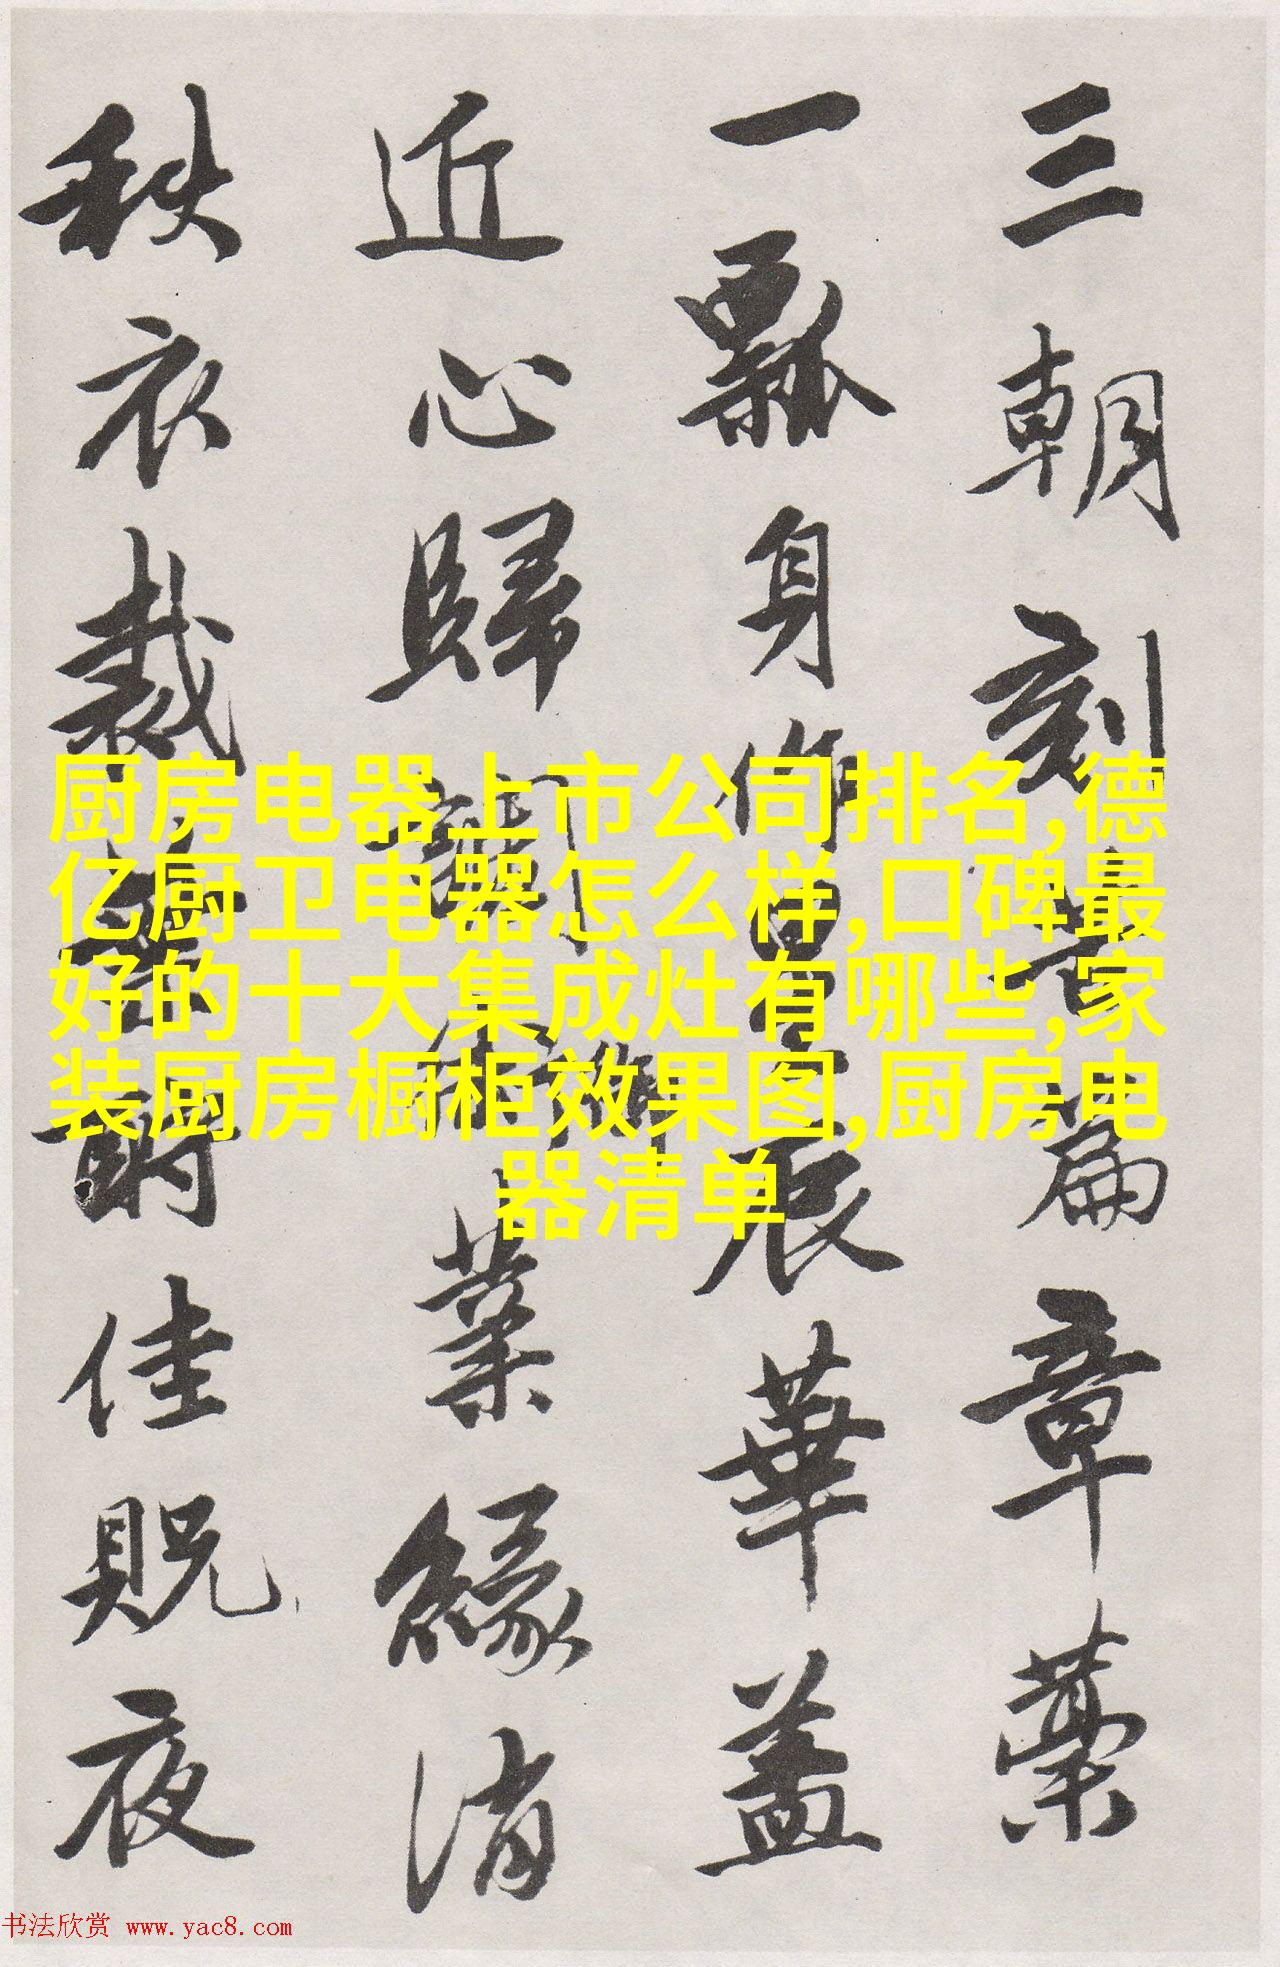 三朝刻篇章藁
一瓢身作昌辰華盖
近心歸葉緣消
秩衣裁酬佳貺夜
厨房电器上市公司排名,德
亿厨卫电器怎么样,口碑最
好的十大集成灶有哪些,家
装厨房橱柜效果图,厨房电
器清单
书法欣赏 www.yac8.com